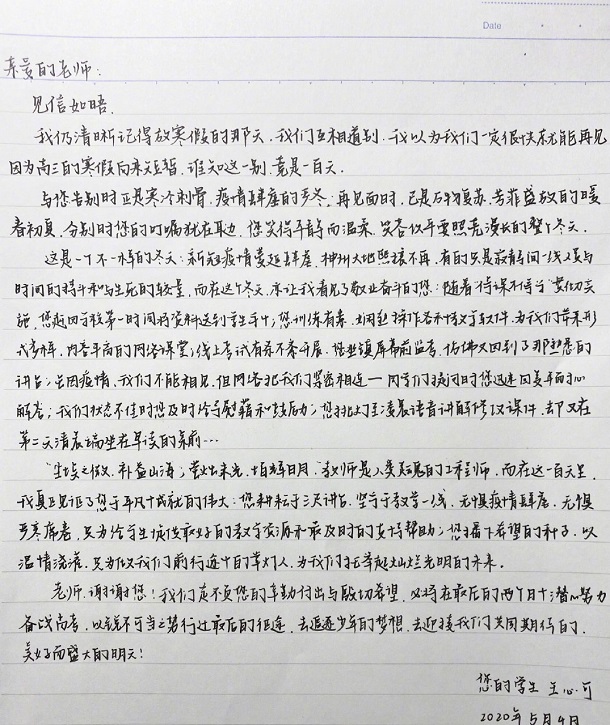 Date
亲爱的老师：
见信如晤。
我仍清晰记得放寒假的那天，我们互相道别，我以为我们一定很快就能再见
因为高三的寒假向来短暂，谁知这一别，竟是一百天。
与您告别时正是寒冷刺骨，疫情肆虐的严冬；再见面时，已是万物复苏，芳菲盛放的暖
春初夏，分别时您的叮嘱犹在耳边，您笑得平静而温柔，笑容似乎要照亮漫长的整个冬天。
这是一个不一样的冬天：新冠疫情蔓延肆虐，神州大地熙攘不再，有的只是寂静间一线又与
时间的搏斗和与生死的较量，而在这个冬天，亦让我看见了敬业奋斗的您：随着"停课不停学"实切实
施，您越回学校第一时间将资料送到学生手中；您训练有素，娴熟操作各种教学软件，为我们带来形
式多样、内容丰富的网络课堂；线上考试有条不紊开展，您坐镇屏幕前监考，仿佛又回到了那熟悉的
讲台；尘因疫情，我们不能相见，但网络把我们紧密相连——同学们疑问时您迅速回复耐心
解答；我们状态不佳时您及时给予慰藉和鼓励；您挑灯至凌晨语音讲解修改课件，却又在
第二天清晨端坐在早读的桌前…
"尘埃之微，补益山海；萤烛末光，增辉日月。"教师是人类灵魂的工程师，而在这一百天里，
我真正见证了您于平凡中成就的伟大：您耕耘于三尺讲台，坚守于教学一线，无惧疫情肆虐，无惧
严寒席卷，只为给学生提供最好的教学资源和最及时的支持帮助；您播下希望的种子，以
温情浇灌，只为做我们前行途中的掌灯人，为我们托举起灿烂光明的未来。
老师，谢谢您！我们定不负您的辛勤付出与殷切希望，必将在最后的两个月中潜心努力
备战高考，以锐不可当之势行过最后的征途，去追逐少年的梦想，去迎接我们共同期待的，
美好而盛大的明天！
您的学生 王心可
2020年5月9日